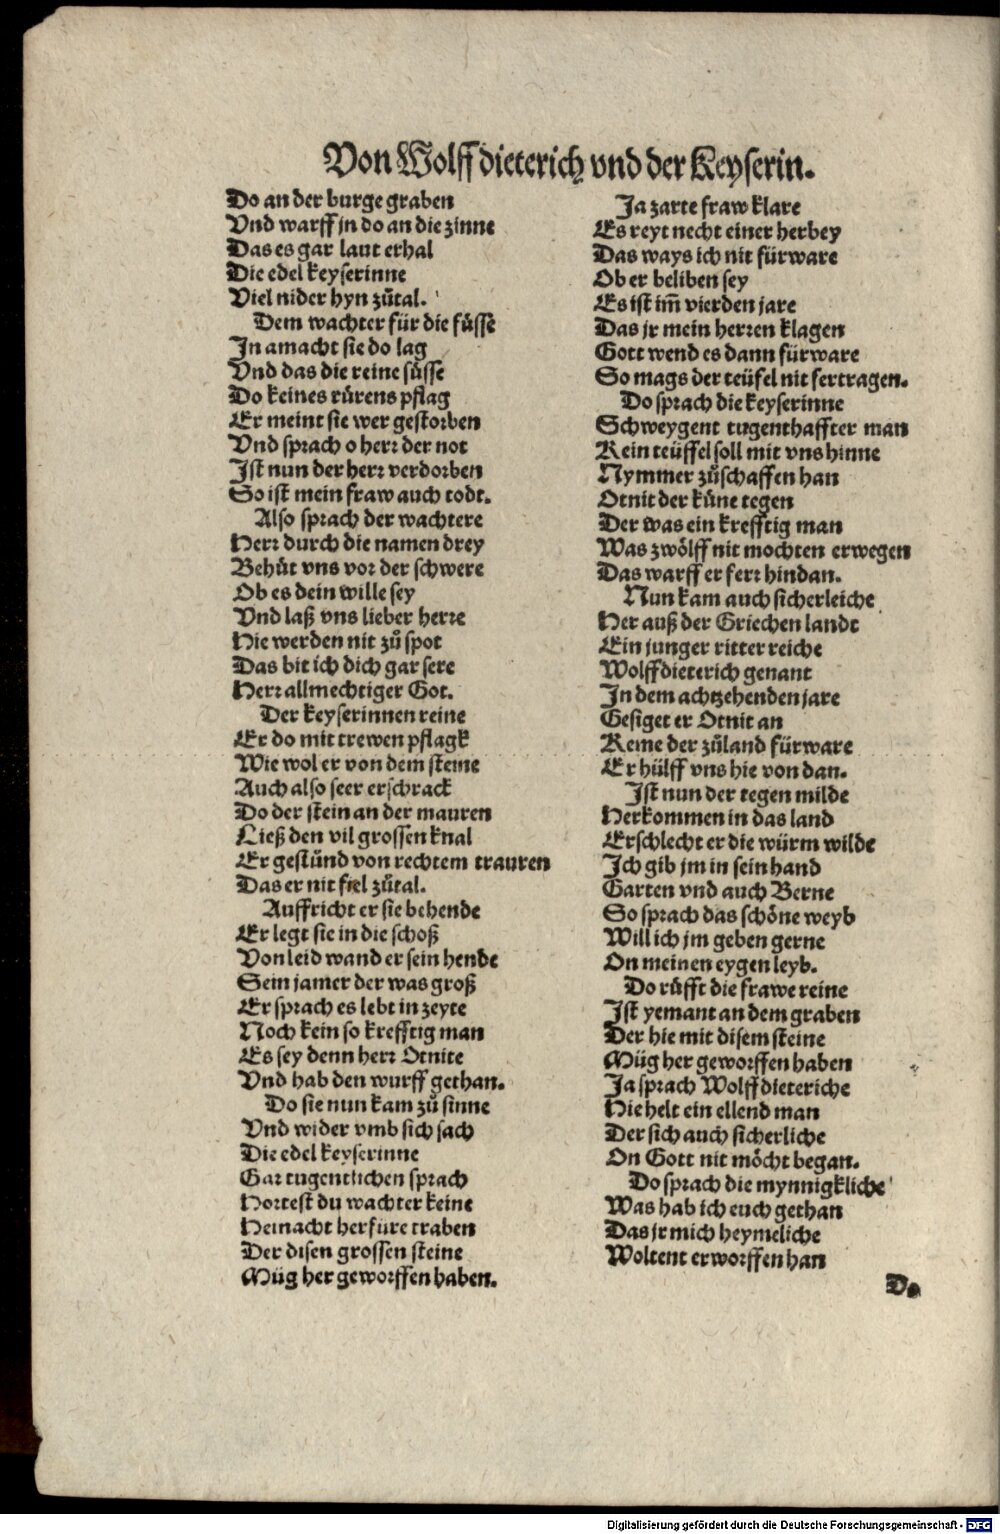 Von Wolffdieterich vnd der Keyserin.
Do an der burge graben
Vnd warff jn do an die zinne
Das es gar laut erhal
Die edel keyserinne
Viel nider hyn zůtal.
Dem wachter für die füsse
In amacht sie do lag
Vnd das die reine süsse
Do keines rürens pflag
Er meint sie wer gestorben
Vnd sprach o herr der not
Ist nun der herr verdorben
So ist mein fraw auch todt.
Also sprach der wachtere
Herr durch die namen drey
Behüt vns vor der schwere
Ob es dein wille sey
Vnd laß vns lieber herre
Hie werden nit zů spot
Das bit ich dich gar sere
Herr allmechtiger Got.
Der keyserinnen reine
Er do mit trewen pflagk
Wie wol er von dem steine
Auch also seer erschrack
Do der stein an der mauren
Ließ den vil grossen knal
Er gestůnd von rechtem trauren
Das er nit fiel zůtal.
Auffricht er sie behende
Er legt sie in die schoß
Von leid wand er sein hende
Sein jamer der was groß
Er sprach es lebt in zeyte
Noch kein so krefftig man
Es sey denn herr Otnite
Vnd hab den wurff gethan.
Do sie nun kam zů sinne
Vnd wider vmb sich sach
Die edel keyserinne
Gar tugentlichen sprach
Hortest du wachter keine
Heinacht herfüre traben
Der disen grossen steine
Müg her geworffen haben.
Ja zarte fraw klare
Es reyt necht einer herbey
Das ways ich nit fürware
Ob er beliben sey
Es ist im̄ vierden jare
Das jr mein herren klagen
Gott wend es dann fürware
So mags der teüfel nit fertragen.
Do sprach die keyserinne
Schweygent tugenthaffter man
Kein teüffel soll mit vns hinne
Nymmer zůschaffen han
Otnit der küne tegen
Der was ein krefftig man
Was zwölff nit mochten erwegen
Das warff er ferr hindan.
Nun kam auch sicherleiche
Her auß der Griechen landt
Ein junger ritter reiche
Wolffdieterich genant
In dem achtzehenden jare
Gesiget er Otnit an
Keme der zůland fürware
Er hülff vns hie von dan.
Ist nun der tegen milde
Herkommen in das land
Erschlecht er die würm wilde
Ich gib jm in sein hand
Garten vnd auch Berne
So sprach das schöne weyb
Will ich jm geben gerne
On meinen eygen leyb.
Do růfft die frawe reine
Ist yemant an dem graben
Der hie mit disem steine
Müg her geworffen haben
Ja sprach Wolffdieteriche
Hie helt ein ellend man
Der sich auch sicherliche
On Gott nit möcht began.
Do sprach die mynnigkliche
Was hab ich euch gethan
Das jr mich heymeliche
Woltent erworffen han
Do
Digitalisierung gefördert durch die Deutsche Forschungsgemeinschaft - DFG